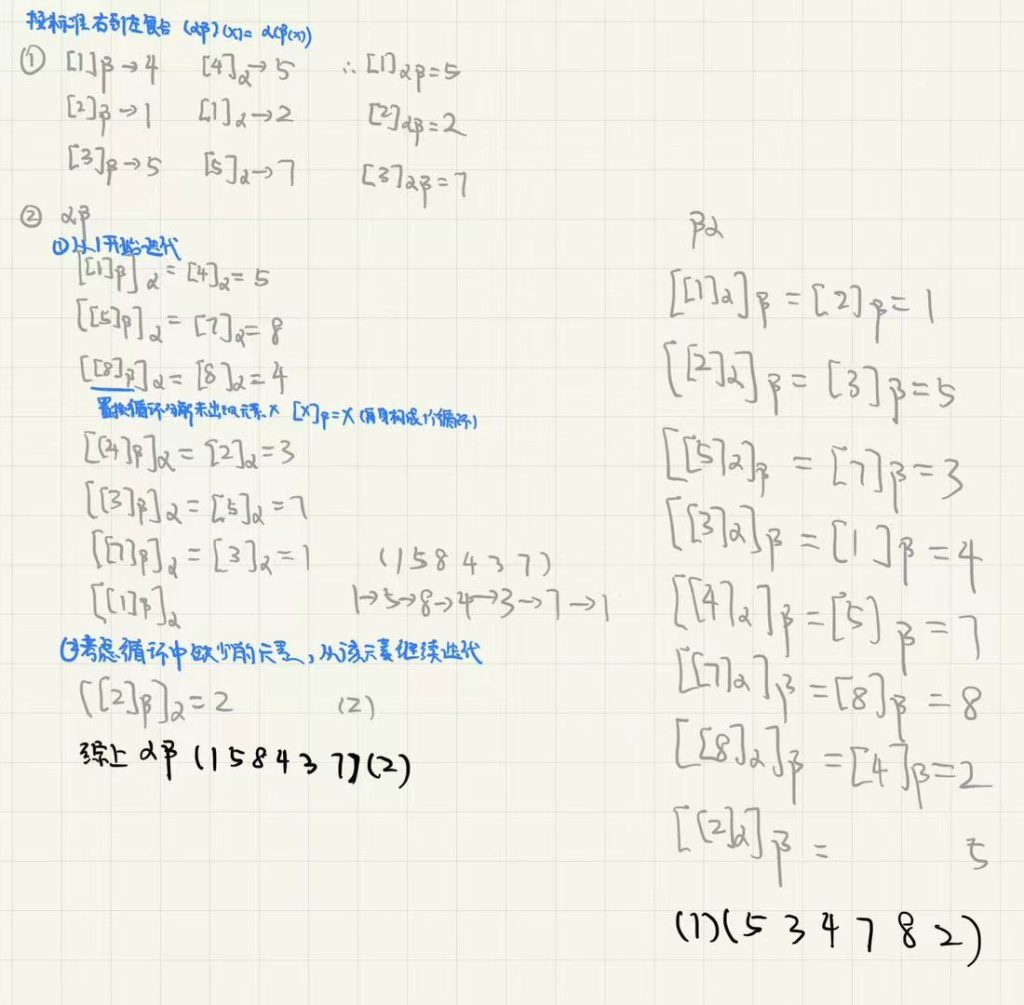 按标准右到左复合 (αβ)(x)= α(β(x))
① [1]β→4 [4]α→5 ∴[1]αβ=5
[2]β→1 [1]α→2 [2]αβ=2
[3]β→5 [5]α→7 [3]αβ=7
② αβ
①从1开始迭代
[[1]β]α=[4]α=5
[[5]β]α=[7]α=8
[[8]β]α=[8]α=4
置换循环分解未出现元素x [x]β=x (自身构成1个循环)
[[4]β]α=[2]α=3
[[3]β]α=[5]α=7
[[7]β]α=[3]α=1 (1 5 8 4 3 7)
[[1]β]α 1→5→8→4→3→7→1
②考虑循环中缺少的元素,从该元素继续迭代
[[2]β]α=2 (2)
综上 αβ (1 5 8 4 3 7)(2)
βα
[[1]α]β=[2]β=1
[[2]α]β=[3]β=5
[[5]α]β=[7]β=3
[[3]α]β=[1]β=4
[[4]α]β=[5]β=7
[[7]α]β=[8]β=8
[[8]α]β=[4]β=2
[[2]α]β= 5
(1)(5 3 4 7 8 2)